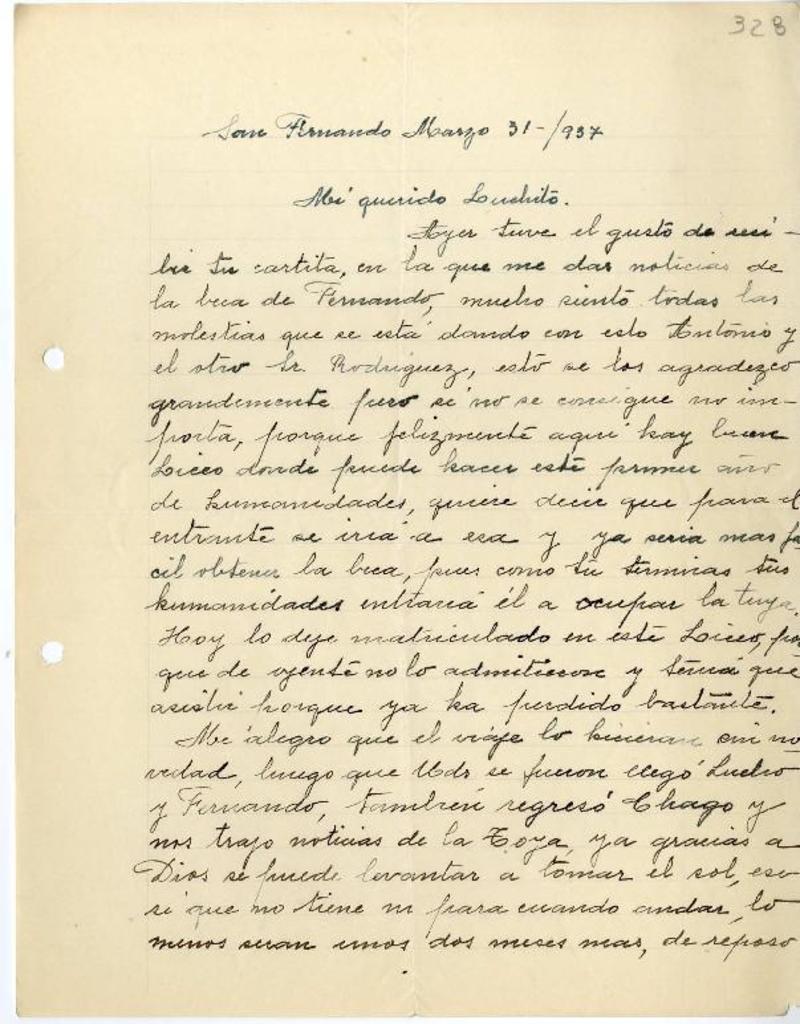 328
San Fernando Marzo 31-/937
Mi querido Luchito.
Ayer tuve el gusto de reci-
bir tu cartita, en la que me das noticias de
la beca de Fernando, mucho siento todas las
molestias que se está dando con esto Antonio y
el otro Sr. Rodriguez, esto se los agradezco
grandemente pero si no se consigue no im-
porta, porque felizmente aqui hay buen
Liceo donde puede hacer este primer año
de humanidades, quiere decir que para el
entrante se iria a esa y ya seria mas fa
cil obtener la beca, pues como tu terminas tus
humanidades entraria él a ocupar la tuya.
Hoy lo deje matriculado en este Liceo, por
que de oyente no lo admitieron y tenia que
asistir porque ya ha perdido bastante.
Me alegro que el viaje lo hicieran sin no
vedad, luego que Uds se fueron llegó Lucho
y Fernando, tambien regresó Chago y
nos trajo noticias de la Toya, ya gracias a
Dios se puede levantar a tomar el sol, eso
si que no tiene ni para cuando andar, lo
menos seran unos dos meses mas, de reposo